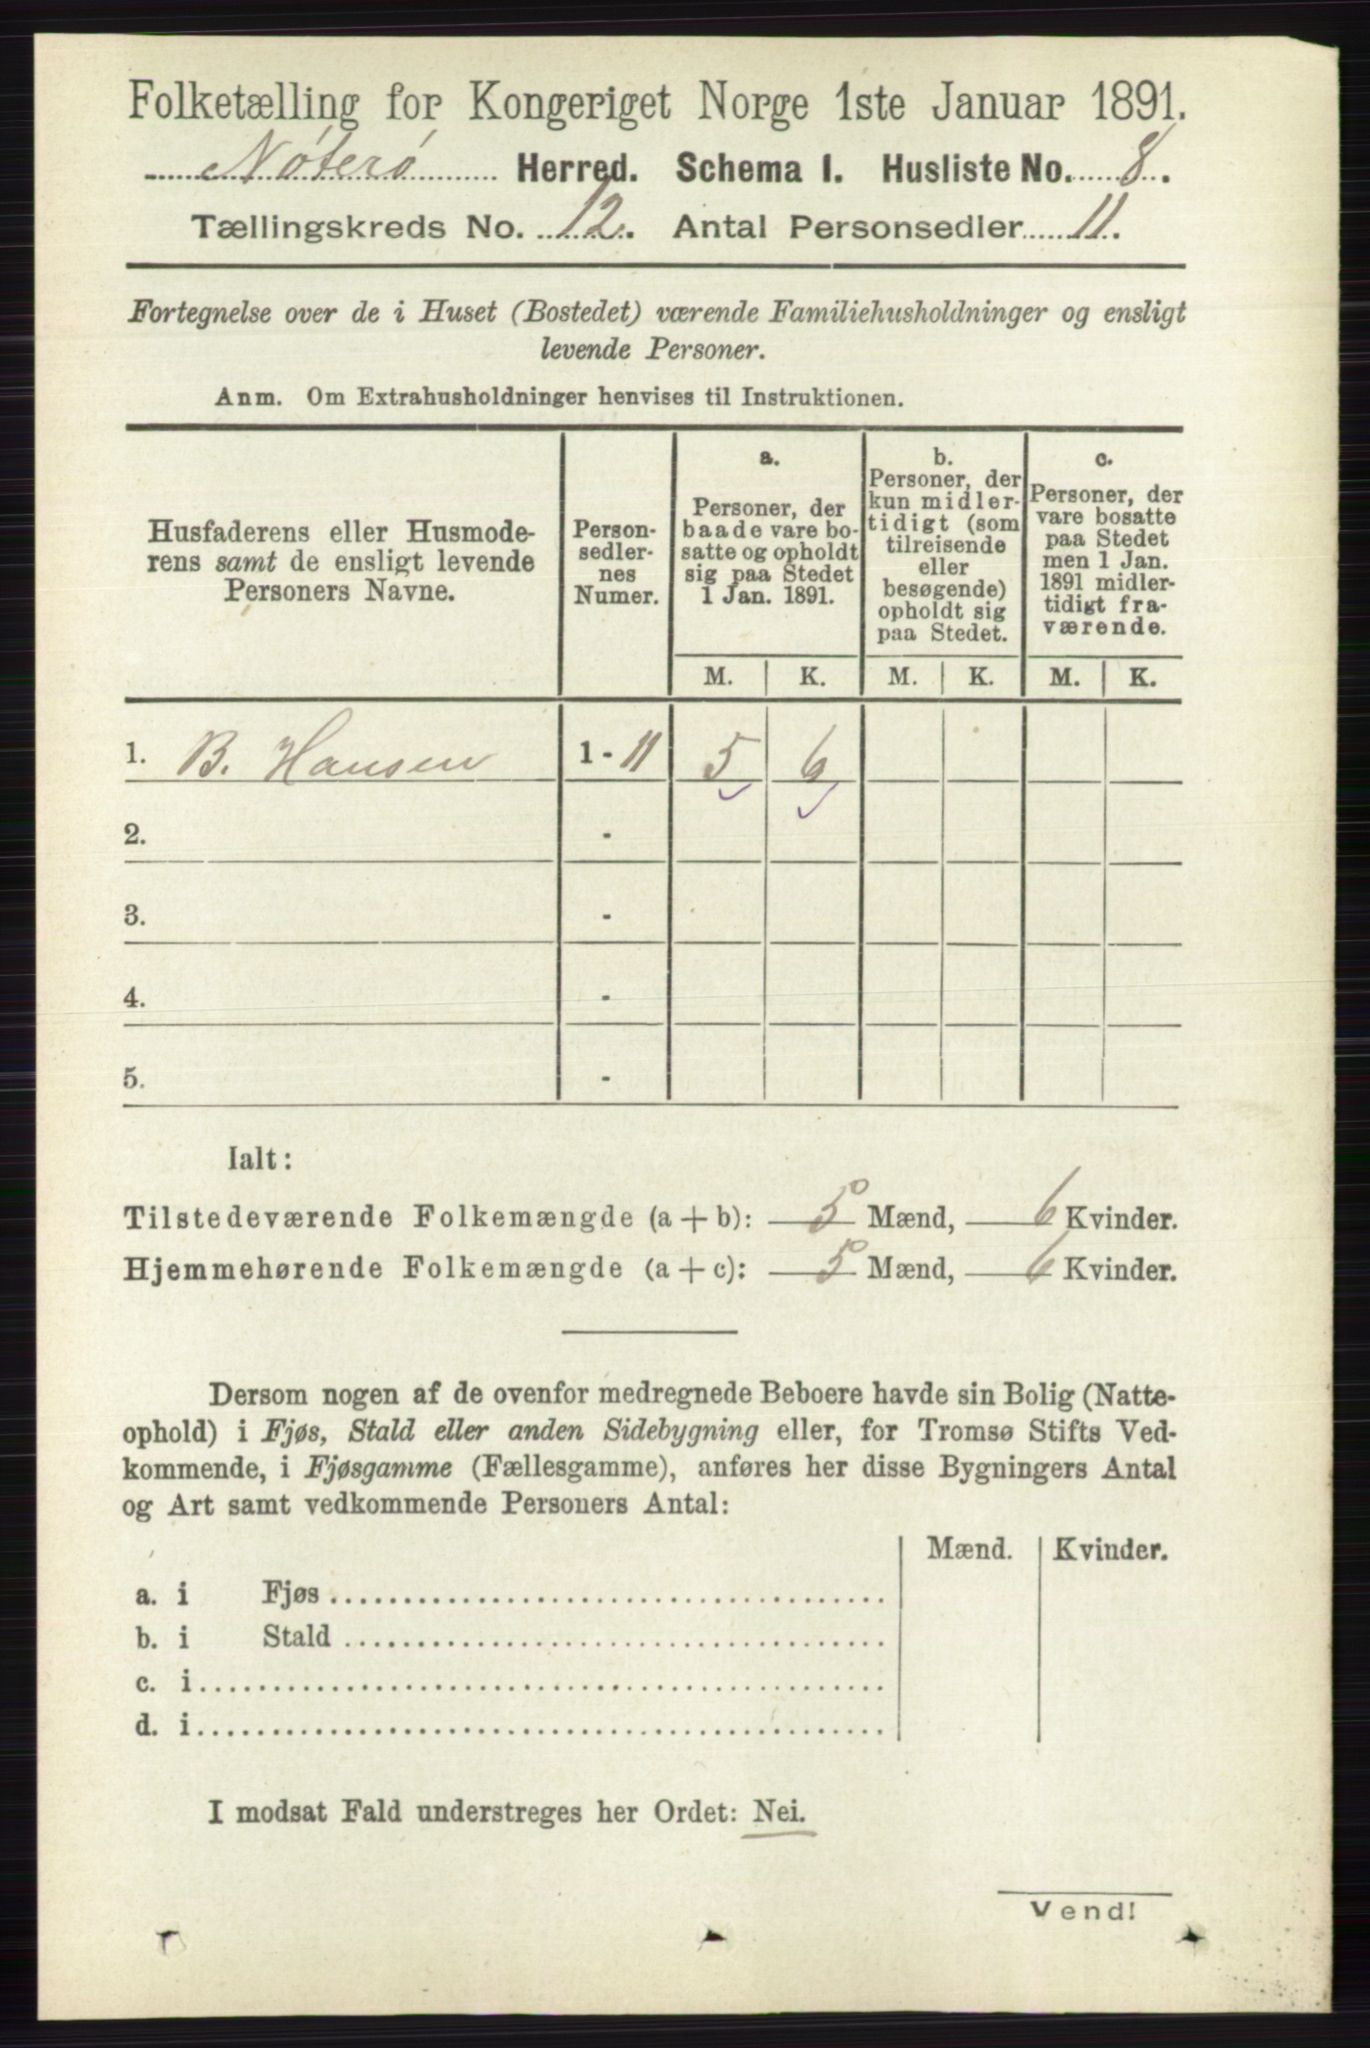 Folketælling for Kongeriget Norge 1ste Januar 1891.
Nøterø Herred. Schema I. Husliste No. 8.
Tællingskreds No. 12. Antal Personsedler 11.
Fortegnelse over de i Huset (Bostedet) værende Familiehusholdninger og ensligt
levende Personer.
Anm. Om Extrahusholdninger henvises til Instruktionen.
Husfaderens eller Husmode-
rens samt de ensligt levende
Personers Navne.
Person-
sedler-
nes
Numer.
a.
Personer, der
baade vare bo-
satte og opholdt
sig paa Stedet
1 Jan. 1891.
b.
Personer, der
kun midler-
tidigt (som
tilreisende
eller
besøgende)
opholdt sig
paa Stedet.
c.
Personer, der
vare bosatte
paa Stedet
men 1 Jan.
1891 midler-
tidigt fra-
værende.
M. K. M. K. M. K.
1. B. Hansen 1 - 11 5 6
2. -
3. -
4. -
5. -
Ialt:
Tilstedeværende Folkemængde (a + b): 5 Mænd, 6 Kvinder.
Hjemmehørende Folkemængde (a + c): 5 Mænd, 6 Kvinder.
Dersom nogen af de ovenfor medregnede Beboere havde sin Bolig (Natte-
ophold) i Fjøs, Stald eller anden Sidebygning eller, for Tromsø Stifts Ved-
kommende, i Fjøsgamme (Fællesgamme), anføres her disse Bygningers Antal
og Art samt vedkommende Personers Antal:
Mænd. Kvinder.
a. i Fjøs
b. i Stald
c. i
d. i
I modsat Fald understreges her Ordet: Nei.
Vend!